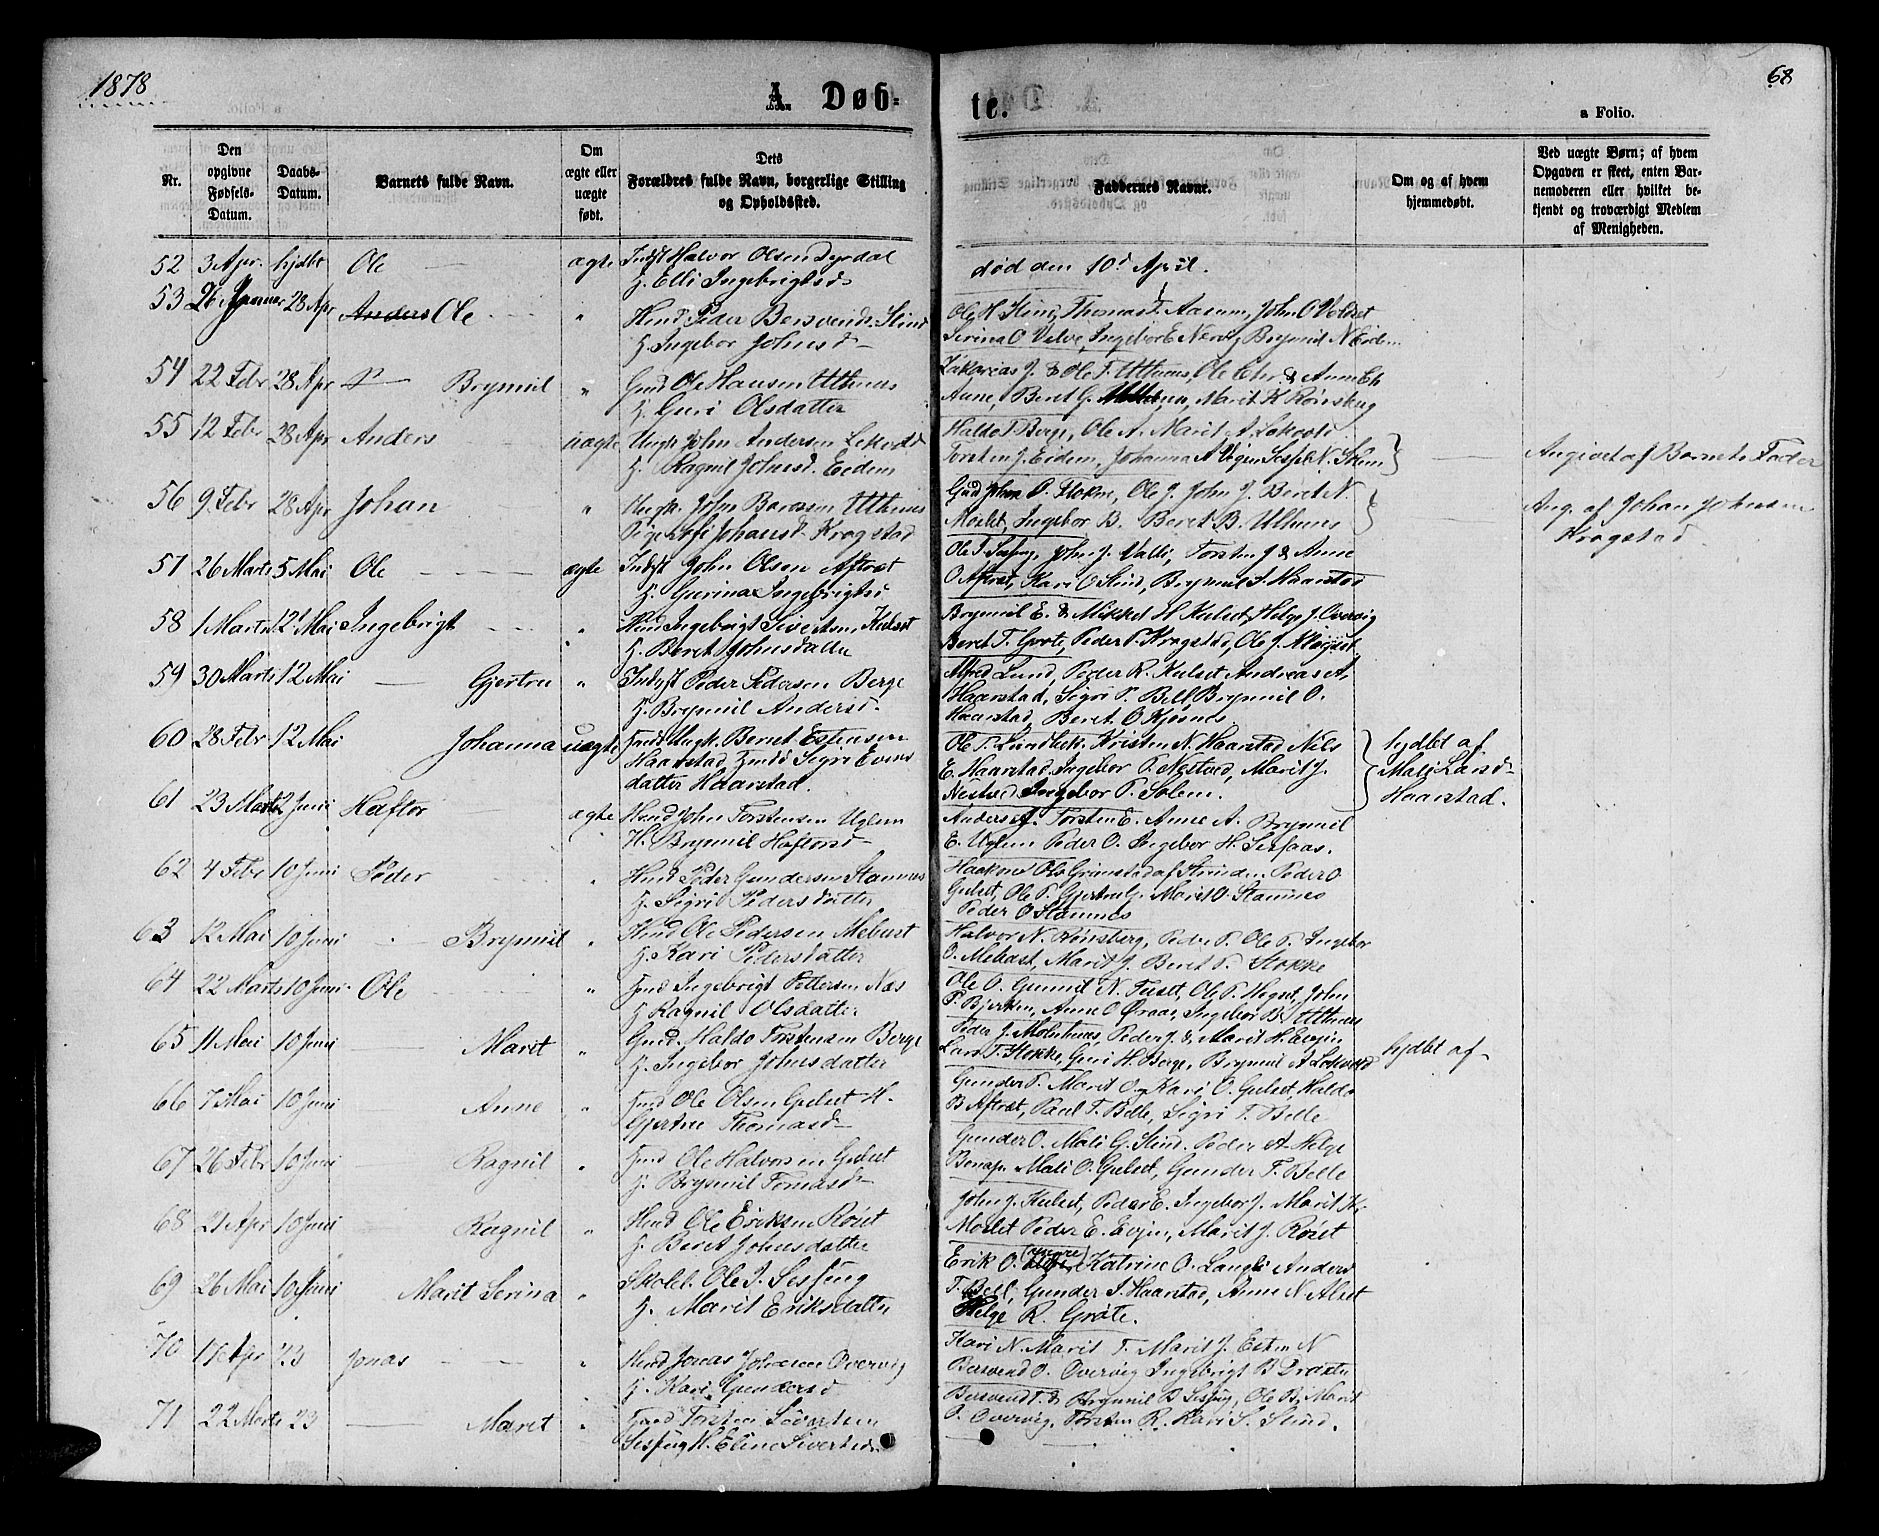 1878
A. Døb=
te.
68
a Folio.
Nr.
Den opgivne Fødsels-Datum.
Daabs-Datum.
Barnets fulde Navn.
Om ægte eller uægte født.
Dets Forældres fulde Navn, borgerlige Stilling og Opholdssted.
Faddernes Navne.
Om og af hvem hjemmedøbt.
Ved uægte Børn; af hvem Opgaven er skeet, enten Barnemoderen eller hvilket bekjendt og troværdigt Medlem af Menigheden.
52 3 Apr. hjdbt Ole ægte Indst Halvor Olsen Dyrdal
H. Elli Ingebrigtsd
død den 10d April.
53 26 Januar 28 Apr Anders Ole " Huud Peder Bersvends. Stind
H. Ingebor Johnsd
Ole H Stind, Thomas T. Aasum, John O Voldset
Serina O Velve, Ingebor E Nervig Brynnil N Eidem
54 22 Febr 28 Apr Brynnil " Gmd Ole Hansen Uthuus
H. Guri Olsdatter
Zakarias J. & Ole T. Uthuus, Ole Chr. & Anne Ch
Aune, Beret G. Marit H Rønsberg
55 12 Febr 28 Apr Anders uægte Ungk John Andersen Løkvold
H. Ragnil Johnsd. Eedem
Haldo T Berge, Ole A. Marit A. Løkvold
Torsten J. Eidem, Johanna A Vigen Sessel N. Stum
Angivet af Barnets Fader
56 9 Febr 28 Apr Johan " Ungk. John Barosen Uthuus
Pige Johansd. Kragstad
John P. Stokm, Ole J. John J. Beret N.
Moslet, Ingebor B. Beret B. Uthuus
Ang. af Johan Johnsen
Kragstad
57 26 Marts 5 Mai Ole ægte Indst John Olsen Aftret
H. Gurina Ingebrigtsd
Ole T. Sesseng, John J. Valli, Torsten J & Anne
O Aftret, Kari O Stind, Brynnil I Haarstad
58 1 Marts 12 Mai Ingebrigt " Huud Ingebrigt Sivertsen Kulset
H. Beret Johnsdatter
Brynnil E. & Mikkel H Kulset, Helge J. Overvig
Beret T. Grøte, Peder P. Kragstad, Ole J.
59 30 Marts 12 Mai Gjertru " Indst Peder Pedersen Berge
H. Brynnil Andersd.
Alfred Lund, Peder R. Kulset Andreas A.
Haarstad, Sigri P. Bell Brynnil O.
Haarstad, Beret O Kjøsnes
60 28 Febr 12 Mai Johanna uægte Ungk. Bernt Estensen
Haarstad Sigri Evens
datter Haarstad.
Ole P. Lundbek. Kristen N. Haarstad, Nils
E. Haarstad, Ingebor P. Nestved, Marit J.
Nestved Ingebor P. Solem.
hjdbt af
Mali Larsd
Haarstad.
61 23 Marts 2 Juni Haftor ægte Huud John Torstensen Uglem
H. Brynnil Haftorsd
Anders J. Torsten E. Anne A. Brynnil
E. Uglem Peder O. Ingebor H. Sesfaas.
62 4 Febr 10 Juni Peder " Huud Peder Gundersen Stamnes
H. Sigri Pedersdatter
Haakon Ole Grønstad af Strinden Peder O
Gulset, Ole P. Gjertru G. Marit O. Stamnes
Peder O Stamnes
63 12 Mai 10 Juni Brynnil " Huud Ole Pedersen Mebust
H. Kari Pedersdatter
Halvor N. Rønsberg, Peder P. Ole P. Ingebor
O. Mebust, Marit J. Beret P. Stokke
64 22 Marts 10 Juni Ole " Huud Ingebrigt Pettersen Næs
H Ragnil Olsdatter
Ole O. Gunnil N. Tuset, Ole P. Hegset, John
P. Bjerken, Anne O Øraas, Ingebor B. Uthuus
65 11 Mai 10 Juni Marit " Gmd. Haldo Torstensen Berge
H. Ingebor Johnsdatter
Peder J. Molutnæs, Peder J. & Marit H. Evjen
Lars T. Stokke, Guri H. Berge, Brynnil A Løkvold
hjdbt af
66 7 Mai 10 Juni Anne " Huud Ole Olsen Gulset H.
Gjertru Thomasd
Gunder P. Marit O. Kari O. Gulset, Haldo
B Aftret, Paul T. Belle, Sigri T. Belle
67 26 Febr 10 Juni Ragnil " Huud Ole Halvorsen Gulset
H. Brynnil Tomasd
Gunder O. Mali G. Stind. Peder A. Helge
Mali O. Gulset, Gunder T. Belle
68 21 Apr 10 Juni Ragnil " Huud Ole Eriksen Røset
H. Beret Johnsdatter
John J. Kulset, Peder E. Ingebor J. Marit H.
Moslet Peder E. Evjen, Marit J. Røset
69 26 Mai 10 Juni Marit Serina " Skolel. Ole J. Sesseng
H. Marit Eriksdatter
Erik O. Katrine O. Langli Anders
T. Bell, Gunder I. Haarstad, Anne N. Alset
Helge R. Grøte.
70 17 Apr 23 Jonas " Huud Jonas Johansen Overvig
H. Kari Gundersd
Kari N. Marit T. Marit J. Esten N
Bersvend O. Overvig Ingebrigt B Draxten
71 22 Marts 23 Maret " Huud Torsten Sivertsen
Sesseng H. Eline Sivertsd.
Bersvend T. & Brynnil B Sesseng, Ole B. Marit
O. Overvig, Torsten R. Kari S. Stind.